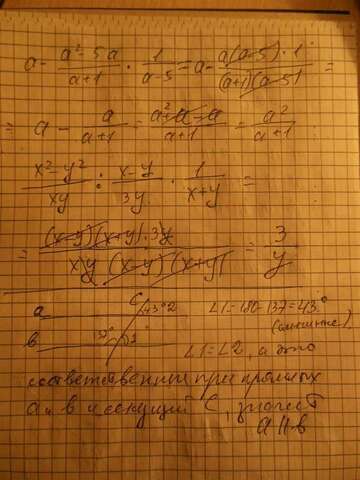 a - \frac{a² - 5a}{a+1} · \frac{1}{a-5} = a - \frac{a(a-5) · 1}{(a+1)(a-5)} =
= a - \frac{a}{a+1} = \frac{a²+a-a}{a+1} = \frac{a²}{a+1}
\frac{x² - y²}{xy} : \frac{x-y}{3y} · \frac{1}{x+y} =
= \frac{(x-y)(x+y) · 3y}{xy (x-y)(x+y)} = \frac{3}{y}
a c 43° 2 ∠1=180-137=43°
(смежные)
в 137° 1
∠1=∠2, а это
соответственные при прямых
a и в и секущей C, значит
a || в